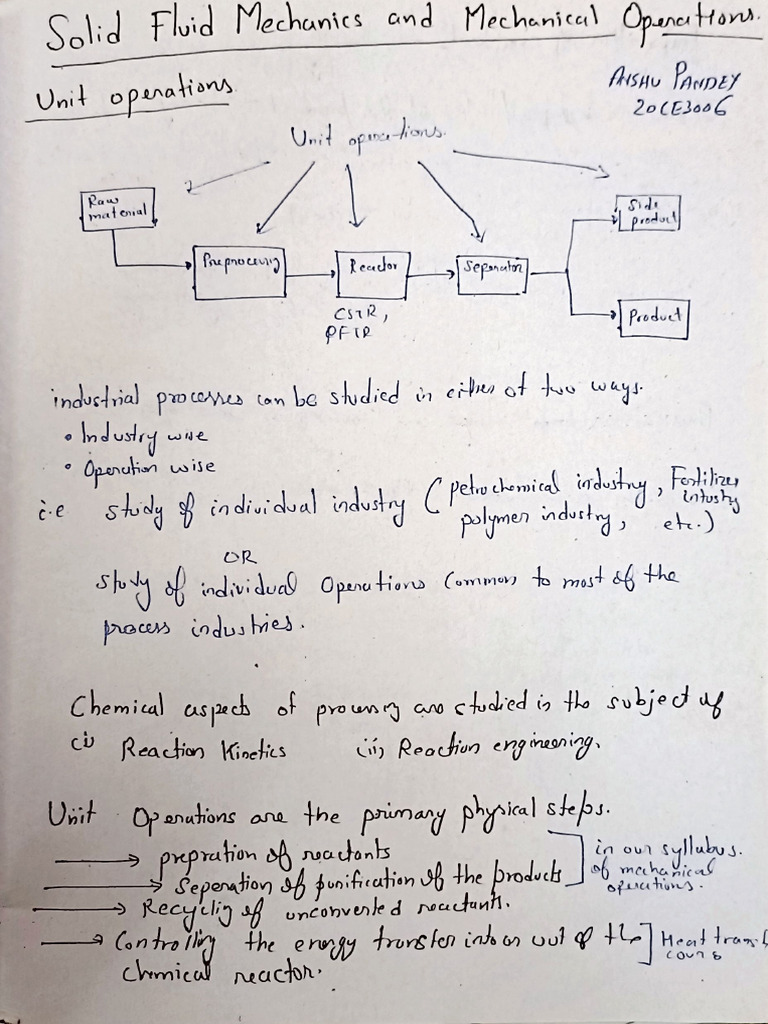 Solid Fluid Mechanics and Mechanical Operations.
AISHU PANDEY
20CE3006
Unit operations
Unit operations.
Raw
material
Preprocessing
Reactor
CSTR,
PFTR
Seperator
Side
product
Product
industrial processes can be studied in either of two ways.
• Industry wise
• Operation wise
i.e study of individual industry (petrochemical industry, Fertilizer intustry
polymer industry, etc.)
OR
study of individual Operations Common to most of the
process industries.
Chemical aspects of processing are studied in the subject of
(i) Reaction Kinetics (ii) Reaction engineering.
Unit Operations are the primary physical steps.
→ prepration of reactants
→ Seperation of purification of the products
in our syllabus.
of mechanical
operations.
→ Recyclig of unconverted reactants.
→ Controlling the energy transfer into or out of the
chemical reactor.
Heat